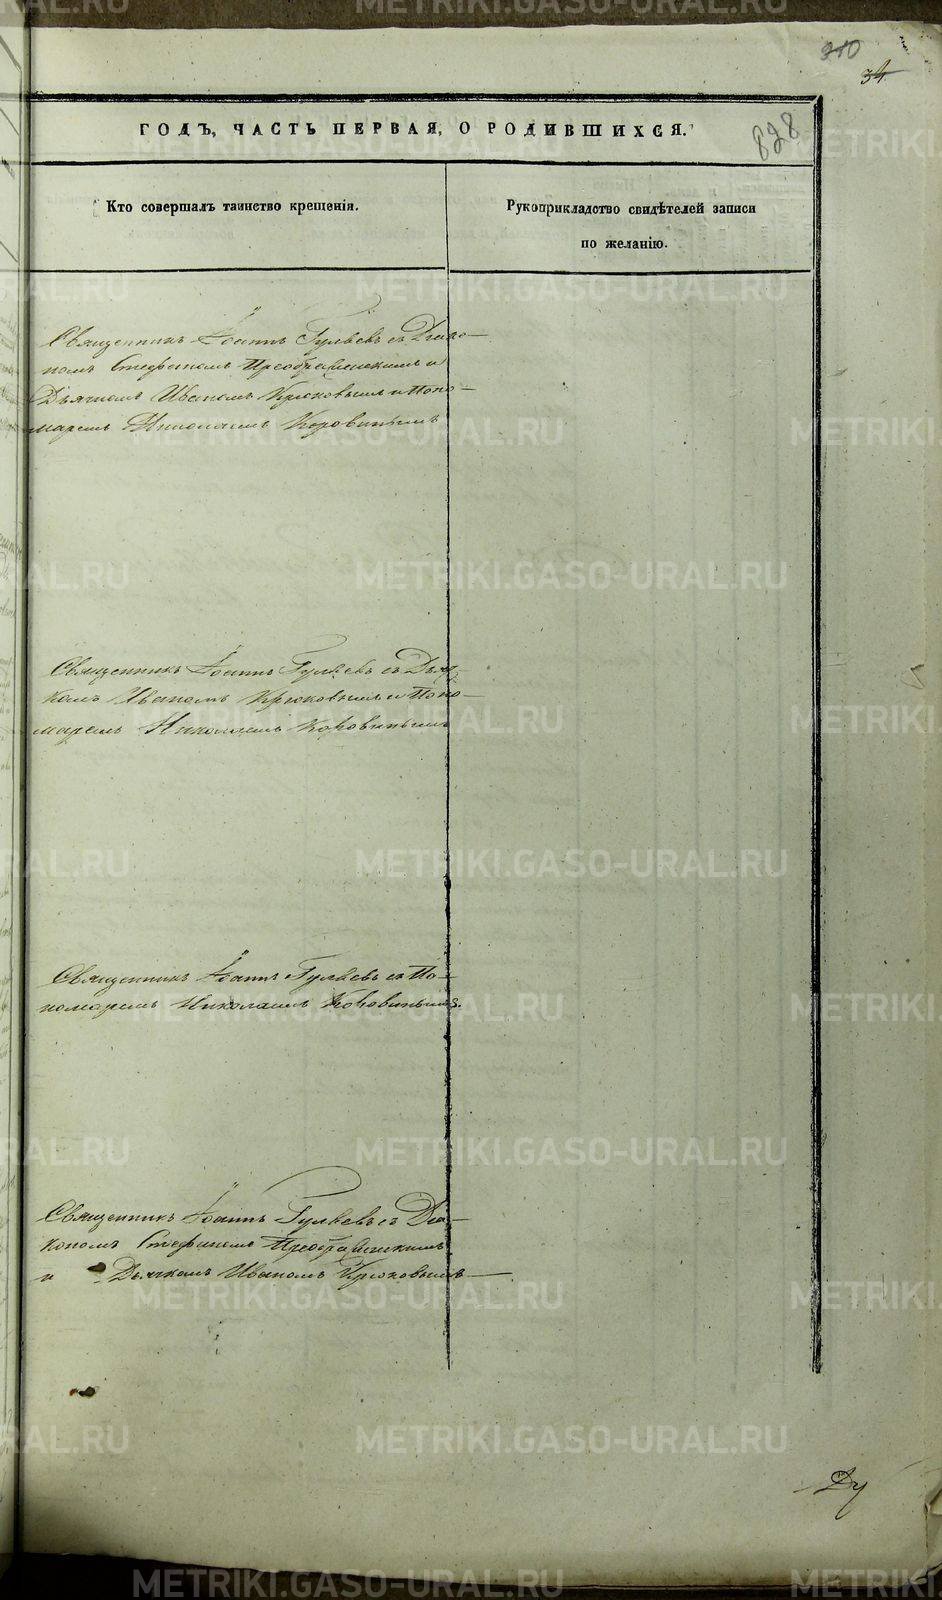 310
34
828
ГОДЪ, ЧАСТЬ ПЕРВАЯ, О РОДИВШИХСЯ.
Кто совершалъ таинство крещенія.
Рукоприкладство свидѣтелей записи
по желанію.
Священникъ Іоаннъ Гуляевъ съ Діако-
номъ Стефаномъ Преображенскимъ и
Дьячкомъ Иваномъ Крюковымъ и Поно-
маремъ Николаемъ Коровинымъ
Священникъ Іоаннъ Гуляевъ съ Дьяч-
комъ Иваномъ Крюковымъ и Поно-
маремъ Николаемъ Коровинымъ
Священникъ Іоаннъ Гуляевъ съ По-
номаремъ Николаемъ Коровинымъ.
Священникъ Іоаннъ Гуляевъ съ Діа-
кономъ Стефаномъ Преображенскимъ
и Дьячкомъ Иваномъ Крюковымъ
METRIKI.GASO-URAL.RU